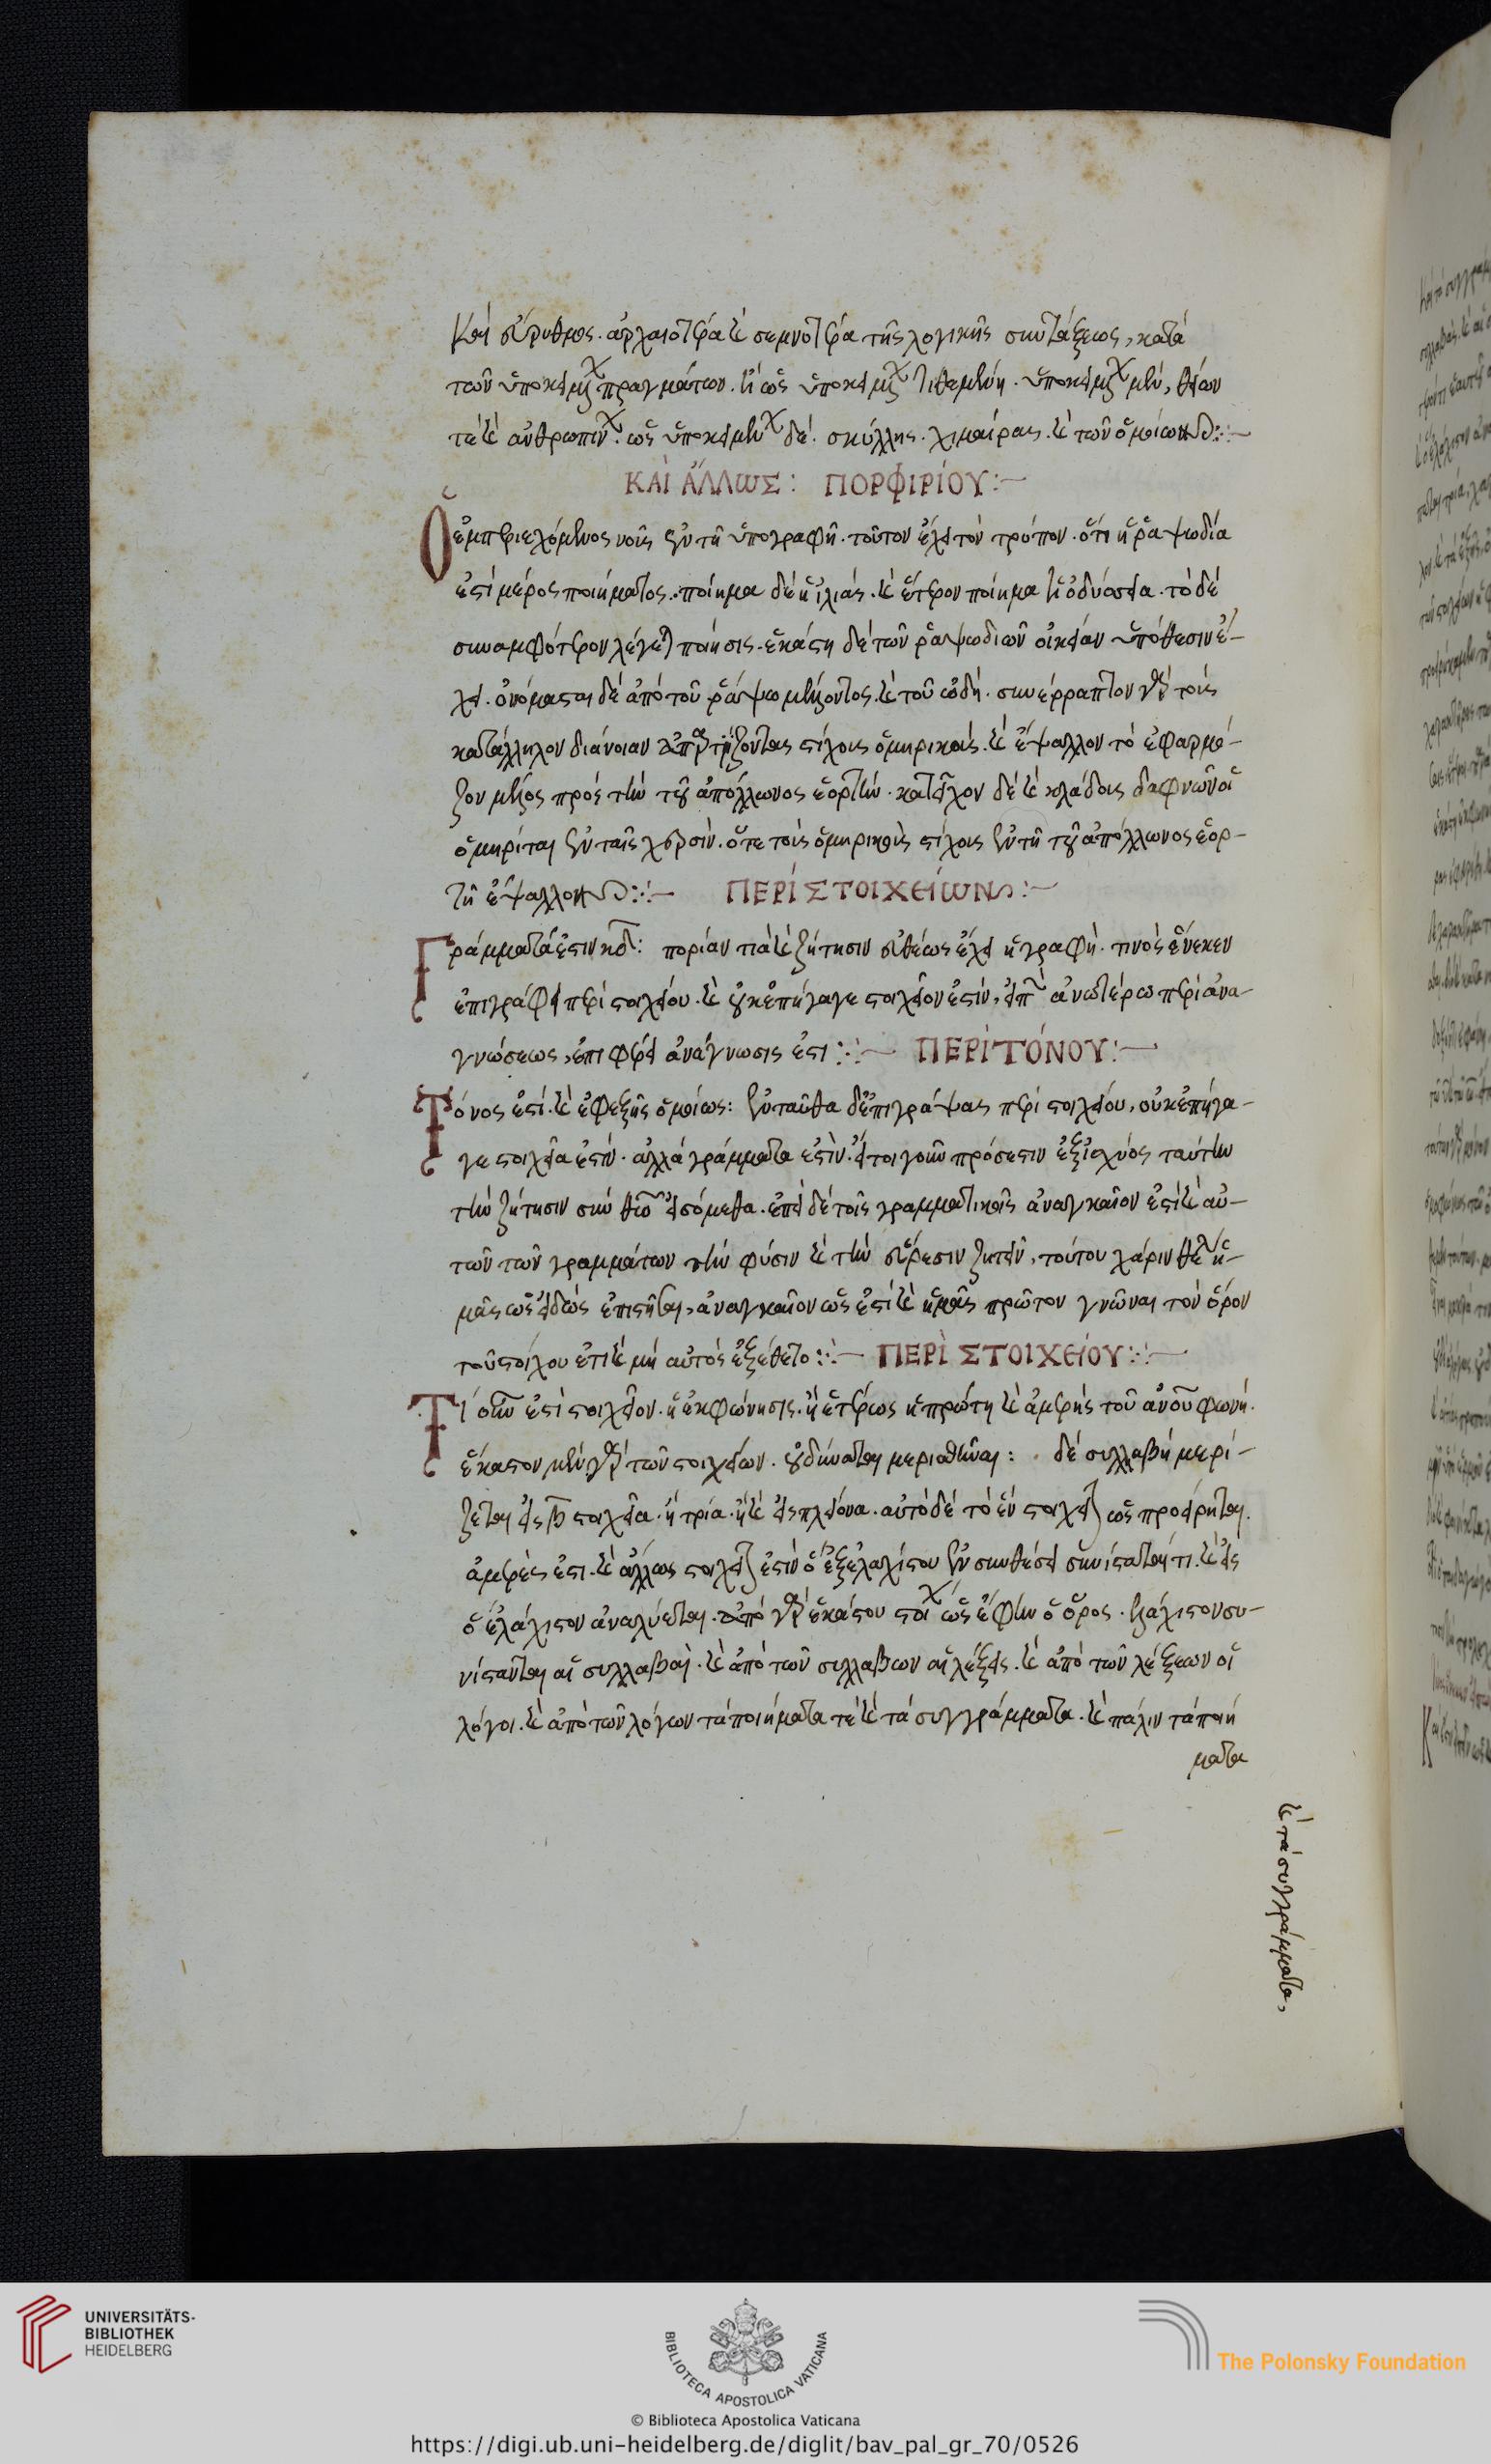 καὶ εὔρυθμος. ἀρχαιοτέρα καὶ σεμνοτέρα τῆς λογικῆς συντάξεως, κατὰ
τῶν ὑποκειμένων πραγμάτων. ἢ ὡς ὑποκειμένων τιθεμένη. ὑποκειμένων μὲν, θείων
τὲ καὶ ἀνθρωπίνων. ὡς ὑποκειμένων δέ. σκύλλης. χιμαίρας. καὶ τῶν ὁμοίων:~
ΚΑΙ ἌΛΛΩΣ: ΠΟΡΦΙΡΊΟΥ:~
Ὁ ἐμπεριεχόμενος νοῦς ἐν τῆ ὑπογραφῆ. τοῦτον ἔχει τὸν τρόπον. ὅτι ἡ ῥαψωδία
ἐστὶ μέρος ποιήματος. ποίημα δὲ ἡ ἰλιάς. καὶ ἕτερον ποίημα ἡ ὀδύσσεια. τὸ δὲ
συναμφότερον λέγεται ποίησις. ἑκάστη δὲ τῶν ῥαψωδιῶν οἰκείαν ὑπόθεσιν ἔ-
χει. ὀνόμασται δὲ ἀπὸ τοῦ ῥάψω μέλλοντος. καὶ τοῦ ὠδή. συνέρραπτον γὰρ τοὺς
κατάλληλον διάνοιαν ἀπαρτίζοντας στίχους ὁμηρικούς. καὶ ἔψαλλον τὸ ἐφαρμό-
ζον μέλος πρὸς τὴν τοῦ ἀπόλλωνος ἑορτήν. κατεῖχον δὲ καὶ κλάδους δαφνῶν οἱ
ὁμηρίται ἐν ταῖς χερσὶν. ὅτε τοὺς ὁμηρικοὺς στίχους ἐν τῆ τοῦ ἀπόλλωνος ἑορ-
τῆ ἔψαλλον:~ ΠΕΡΊ ΣΤΟΙΧΕΊΩΝ:~
Γράμματά ἐστιν κδ: πορίαν τινὰ καὶ ζήτησιν εὐθέως ἔχει ἡ γραφὴ. τινὸς ἕνεκεν
ἐπιγράφει περὶ στοιχείου. καὶ οὐκ ἐπήγαγε στοιχεῖον ἐστίν, ἀνωτέρω περὶ ἀνα-
γνώσεως, ἐπιφέρει ἀνάγνωσις ἐστι:~ ΠΕΡῚ ΤΌΝΟΥ:~
Τόνος ἐστί. καὶ ἐφεξῆς ὁμοίως: ἐνταῦθα δ' ἐπιγράψας περὶ στοιχείου, οὐκ ἐπήγα-
γε στοιχεῖα ἐστίν. ἀλλὰ γράμματα ἐστὶν. πρόσεστιν ἐξ ἰσχύος ταύτην
τὴν ζήτησιν σὺν θεῶ εἰσόμεθα. ἐπεὶ δὲ τοῖς γραμματικοῖς ἀναγκαῖον ἐστὶ καὶ αὐ-
τῶν τῶν γραμμάτων τὴν φύσιν καὶ τὴν εὕρεσιν ζητεῖν, τούτου χάριν θέλει ἡ-
μᾶς ὡς εἰδὼς ἐπιστῆσαι, ἀναγκαῖον ὡς ἐστὶ καὶ ἡμᾶς πρῶτον γνῶναι τὸν ὅρον
τοῦ στοίχου ἐστι καὶ μὴ αὐτὸς ἐξέθετο:~ ΠΕΡῚ ΣΤΟΙΧΕΊΟΥ:~
Τί οὖν ἐστὶ στοιχεῖον. ἡ ἐκφώνησις. ἢ ἑτέρως ἡ πρώτη καὶ ἀμερὴς τοῦ ἀνθρώπου φωνή.
ἕκαστον μὲν γὰρ τῶν στοιχείων. οὐ δύναται μερισθῆναι: δὲ συλλαβὴ μερί-
ζεται εἰς β στοιχεῖα. ἢ τρία. ἢ καὶ εἰς πλείονα. αὐτὸ δὲ τὸ ἓν στοιχεῖον ὡς προείρηται.
ἀμερὲς ἐστι. καὶ ἄλλως στοιχεῖον ἐστὶν ὃ ἐξ ἐλαχίστου ἐν συνθέσει συνίσταταί τι. καὶ εἰς
ὃ ἐλάχιστον ἀναλύεται. ἀπὸ γὰρ ἑκάστου στοιχείου ὡς ἔφην ὁ ὅρος. ἐλάχιστον συ-
νίστανται αἱ συλλαβαὶ. καὶ ἀπὸ τῶν συλλαβῶν αἱ λέξεις. καὶ ἀπὸ τῶν λέξεων οἱ
λόγοι. καὶ ἀπὸ τῶν λόγων τὰ ποιήματα τὲ καὶ τὰ συγγράμματα. καὶ πάλιν τὰ ποιή
ματα
καὶ τὰ συγγράμματα,
UNIVERSITÄTS-
BIBLIOTHEK
HEIDELBERG
BIBLIOTECA APOSTOLICA VATICANA
The Polonsky Foundation
© Biblioteca Apostolica Vaticana
https://digi.ub.uni-heidelberg.de/diglit/bav_pal_gr_70/0526